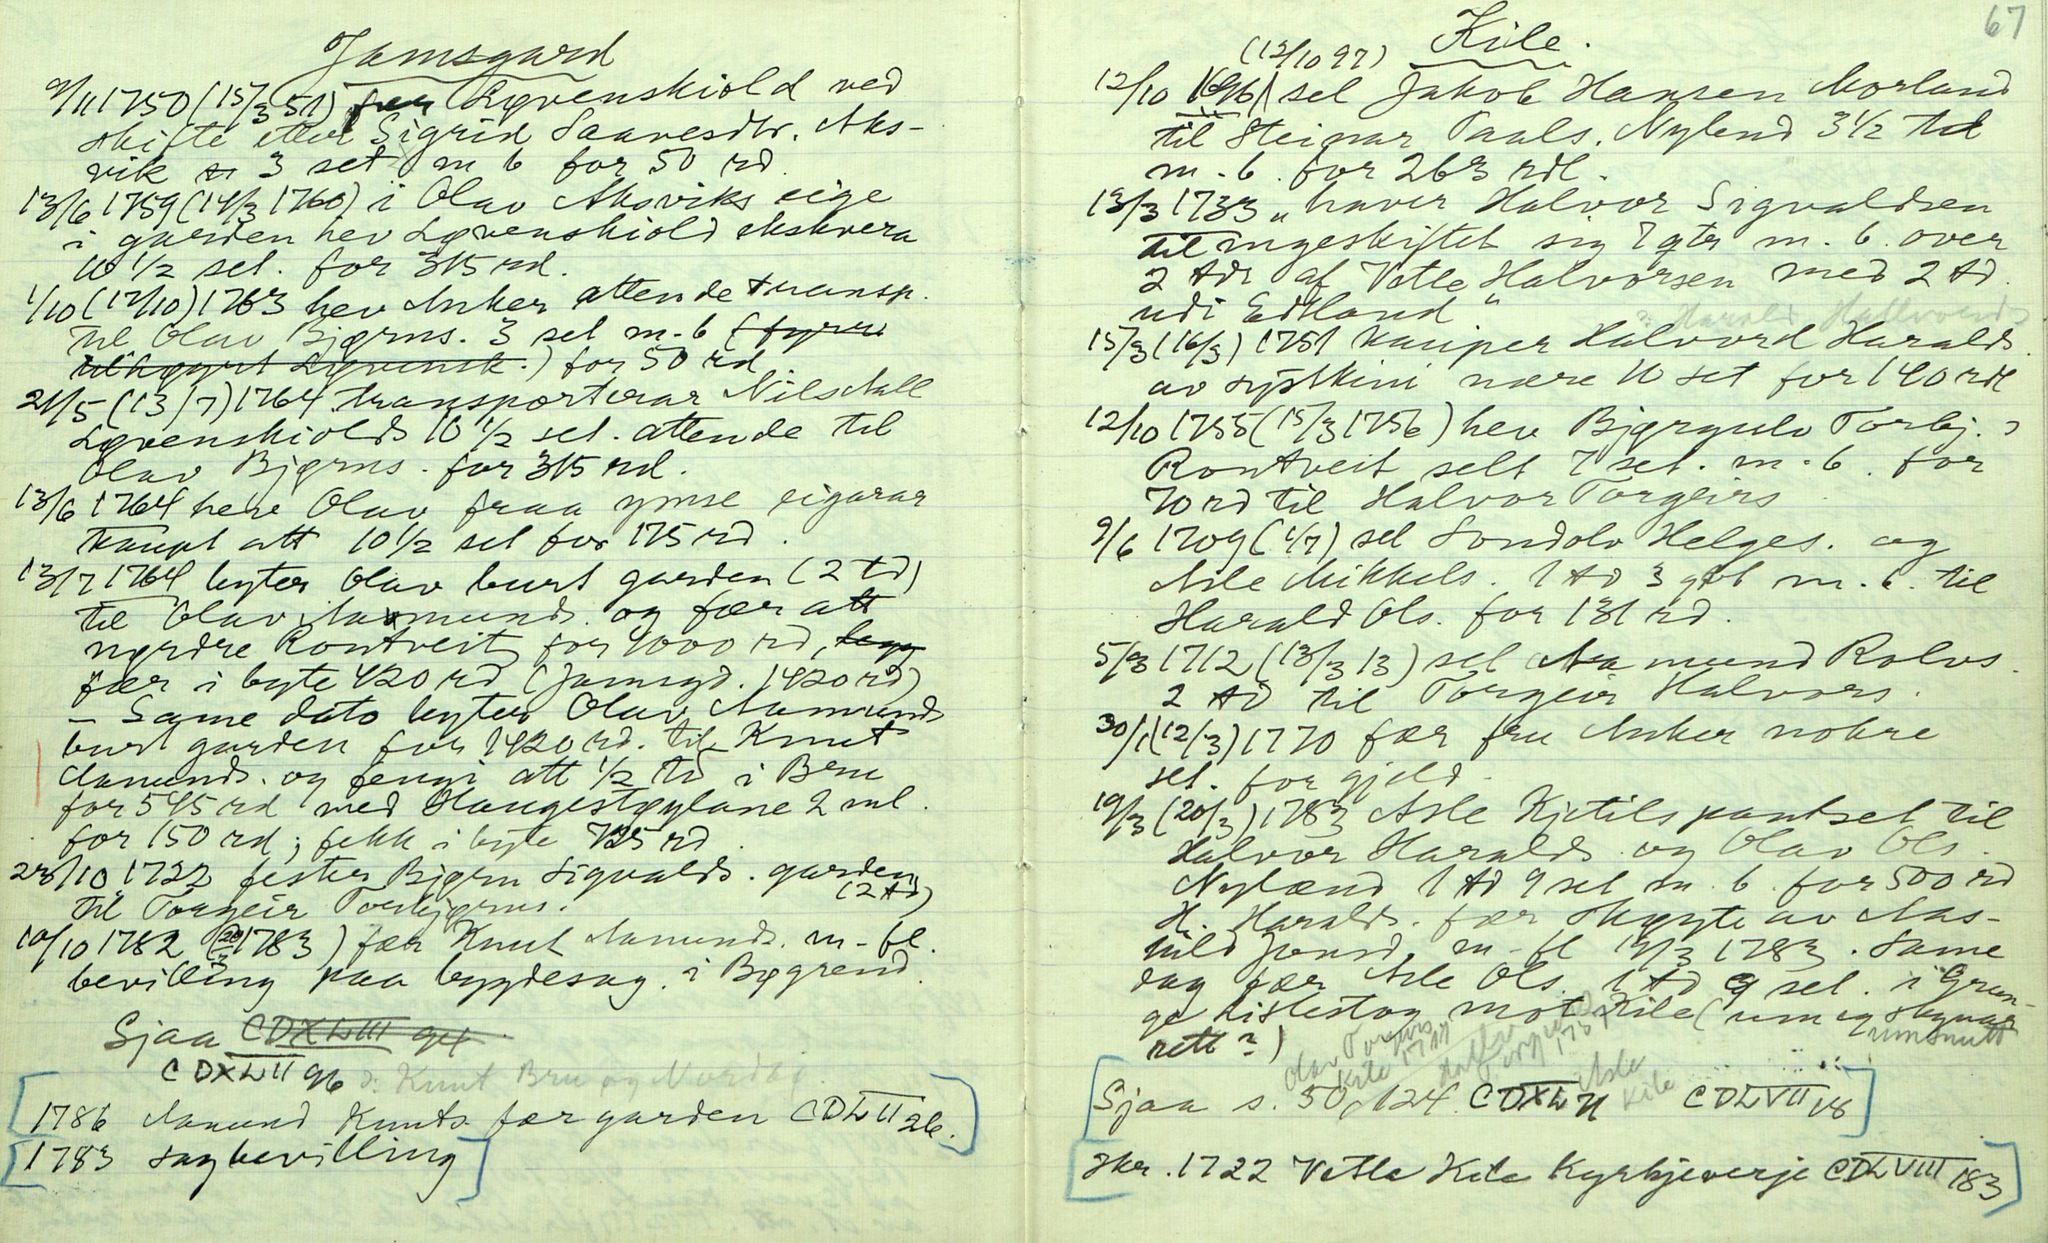 Jamsgard
9/11 1750 (15/3 51) fær Løvenskiold ved
skifte etter Sigrid Saavesdtr. Aks-
vik 3 set m b for 50 rd
13/6 1759 (14/3 1760) i Olav Aksviks eige
i garden hev Løvenskiold ekskvera
10 1/2 sel. for 315 rd.
1/10 (12/10) 1763 hev Anker attende transp.
til Olav Bjørns. 3 sel m-b (fyrr
tilhøyrt Løvensk.) for 50 rd
21/5 (13/7) 1764 transporterar Nils
Løvenskiolds 10 1/2 sel. attende til
Olav Bjørns. for 315 rd.
13/6 1764 hev Olav fraa ymse eigarar
kaupt att 10 1/2 sel for 175 rd.
13/7 1764 byter Olav burt garden (2 td)
til Olav Aamunds. og fær att
nørdre Rontveit for 1000 rd,
fær i byte 420 rd (Jamsgd. 1420 rd)
– Same dato byter Olav Aamunds
burt garden for 1420 rd. til Knut
Aamunds. og fengi att 1/2 td i Bru
for 545 rd med Haugestøylane 2 ml.
for 150 rd; fekk i byte 725 rd.
28/10 1722 fester Bjørn Sigvalds. garden
(2 td)
til Torgeir Torbjørns.
10/10 1782 (20/3 1783) fær Knut Aamunds. m-fl.
bevilling paa bygdesag i Bøgrend.
Sjaa CDXLVIII 94
CDXLII 96 ɔ: Knut Bru og Nordbø.
1786 Aamund Knuts. fær garden CDLII 26.
1783 sagbevilling
67
Kile.
(12/10 97)
12/10 1696 sel Jakob Hansen Morland
til Steinar Paals. Nylend 3 1/2 td
m. b. for 263 rdl.
13/3 1733 "haver Halvor Sigvaldsen
tilmageskiftet sig 7 qtr m. b. over
2 tdr af Vetle Halvorsen med 2 td.
udi Edland"
ɔ: Harald Hallvords
15/3 (16/3) 1751 kauper Halvord Haralds.
av syskini nære 10 set for 140 rdl
12/10 1755 (15/3 1756) hev Bjørgulv Torbj. ɔ
Rontveit selt 7 sel. m-b. for
70 rd til Halvor Torgeirs.
9/6 1709 (1/7) sel Sondolv Helges. og
Asle Mikkels. 1 td 3 m. b. til
Harald Ols. for 131 rd.
5/3 1712 (13/3 13) sel Aamund Rolvs.
2 td til Torgeir Halvors.
30/1 (12/3) 1770 fær fru Anker nokre
sel. for gjeld.
19/3 (20/3) 1783 Asle Kjetils pantset til
Halvor Haralds. og Olav Ols.
Nylænd 1 td 9 sel m. b. for 500 rd
H. Haralds. fær skøyte av Aas-
hild Jonsd. m-fl 19/3 1783. Same
dag fær Asle Ols. 1 td 9 sel. i Grun-
ge listestog mot Kile (um eg skynar
umsnutt
rett?)
Olav Torgeirs Kile 1711
Halvor Torgeirs 176
Asle Kile
Sjaa s. 50, 124. CDXLII CDLVII 18
Skr. 1722 Vetle Kile Kyrkjeverje CDLVIII 183